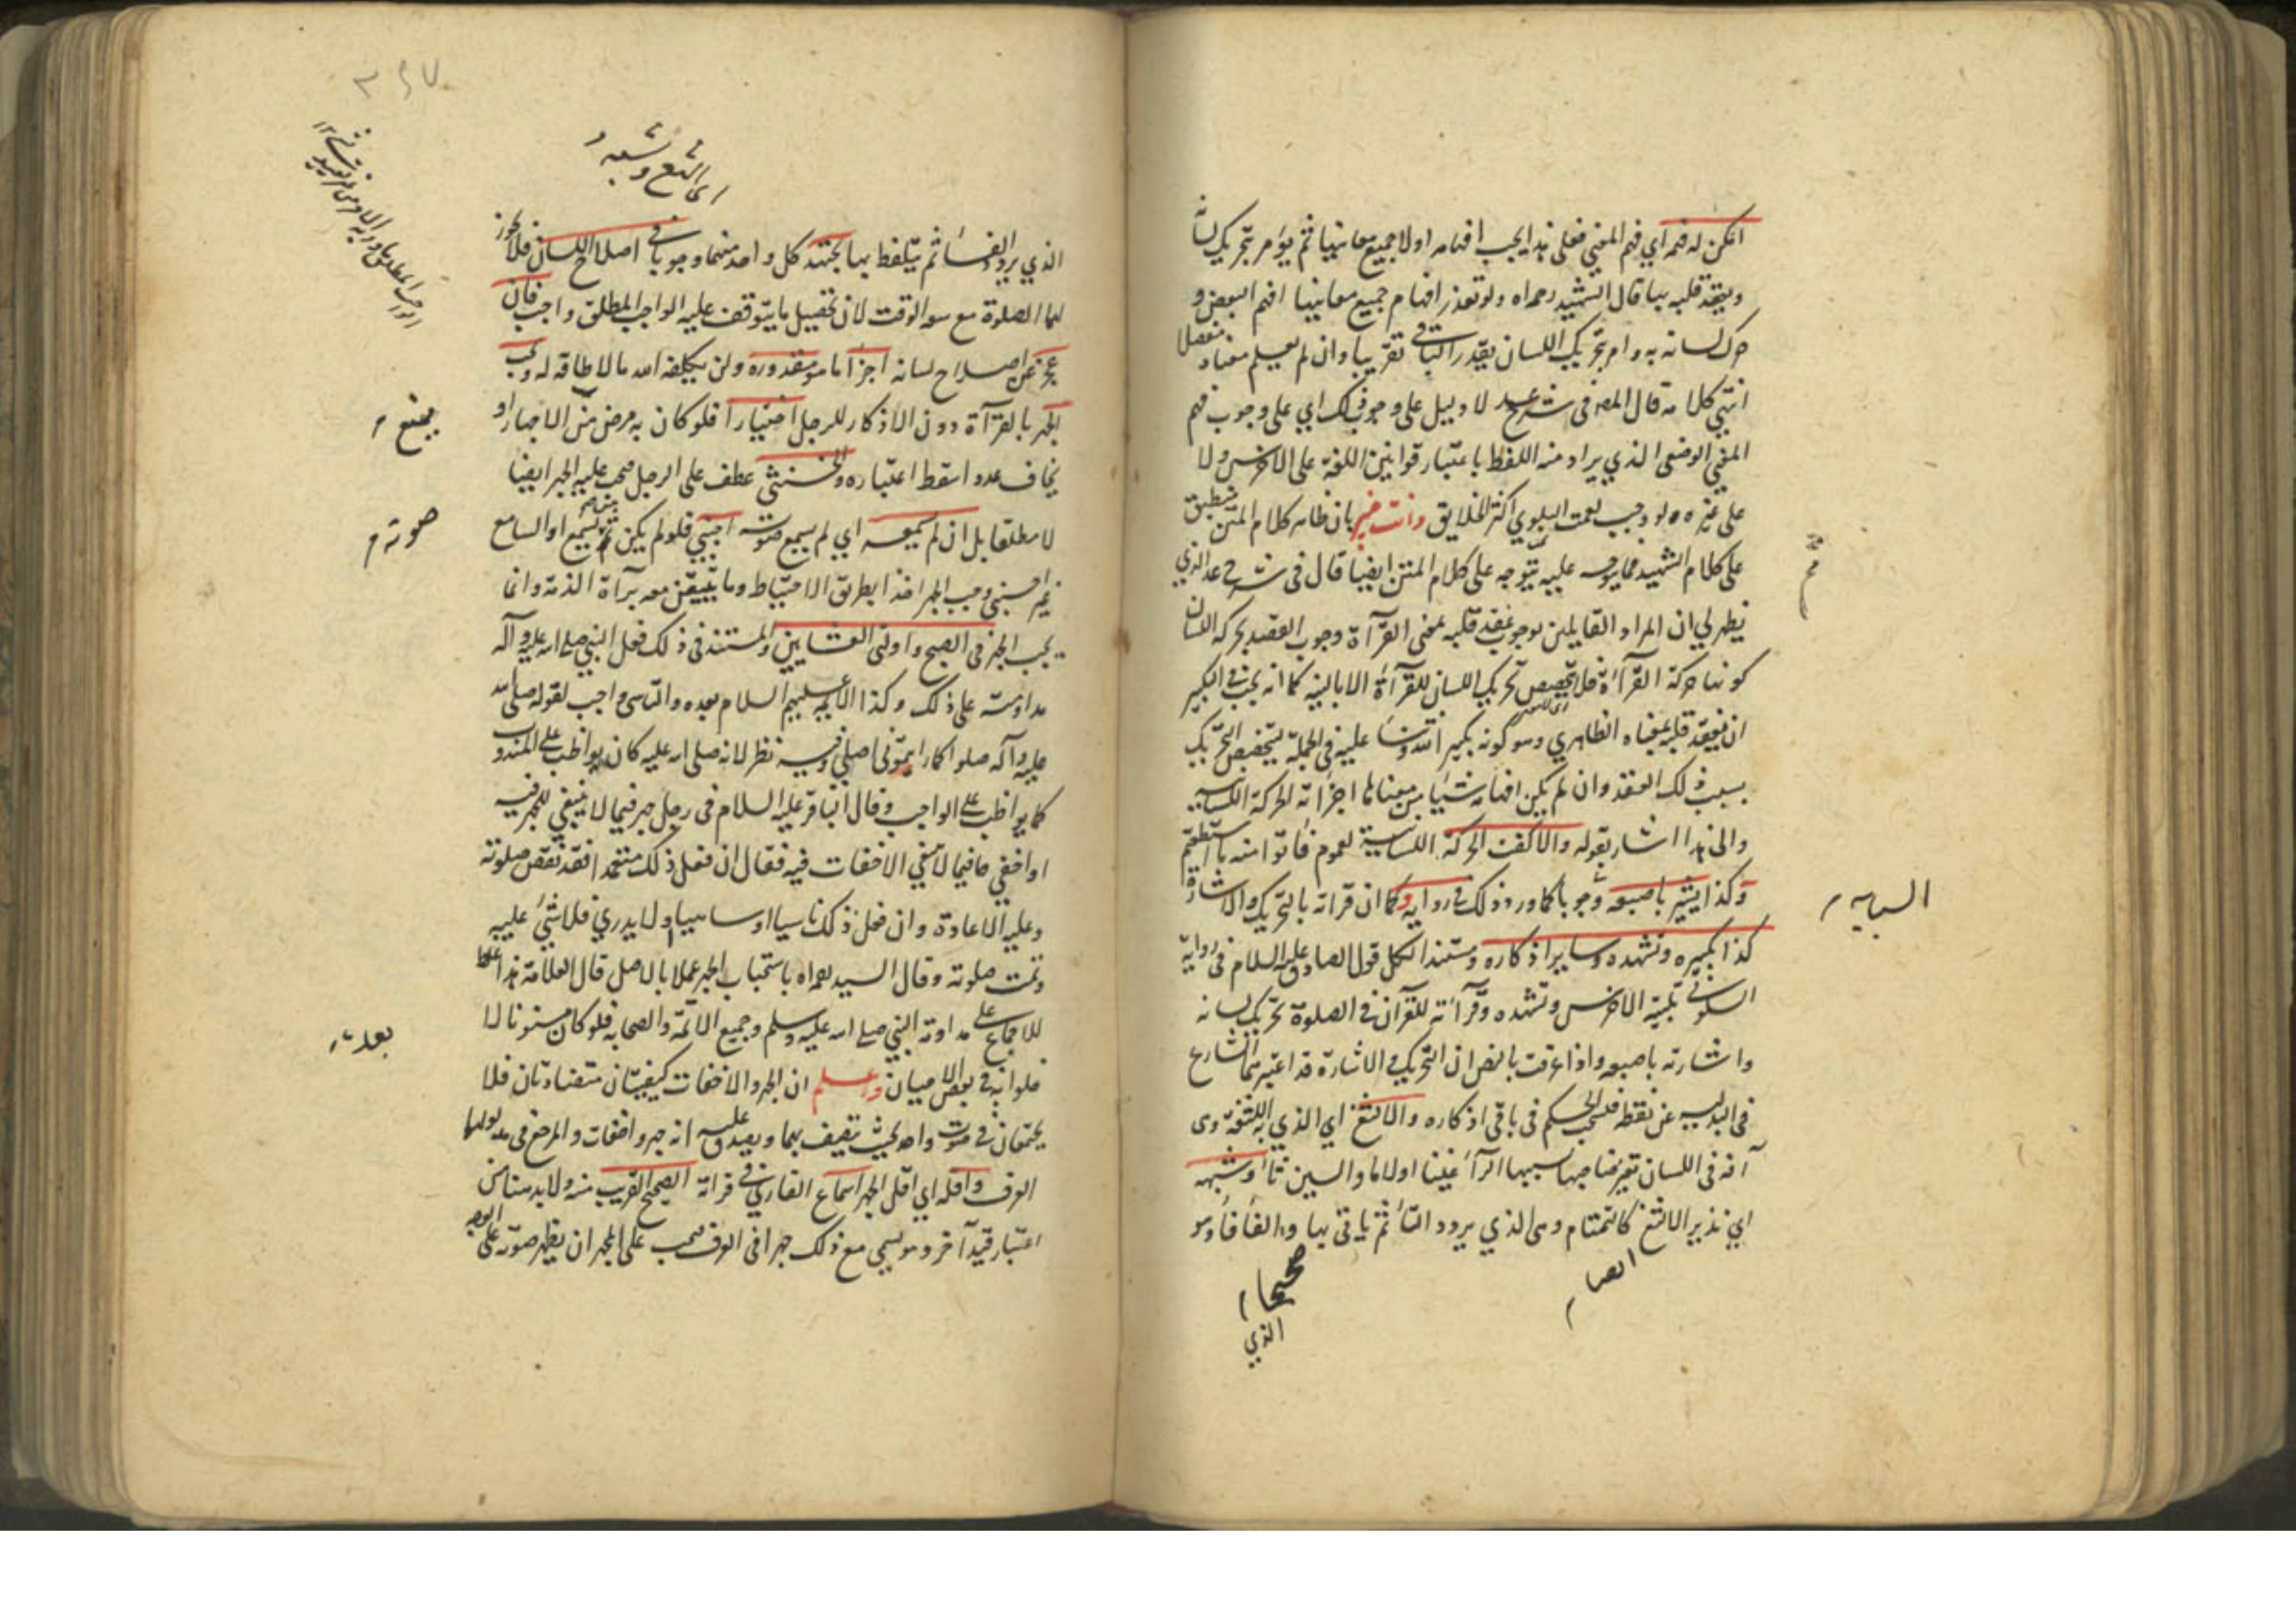 امكن له فهمه اي فهم المعنى فعلى هذا يجب افهامه اولا جميع معانيها ثم يؤمر بتحريك لسانه
ويعقد قلبه بها قال الشهيد رحمه اه ولو تعذر افهام جميع معانيها افهم البعض و
حرك لسانه به وامر بتحريك اللسان بقدر الباقي تقريبا وان لم يعلم معناه مفصلا
انتهى كلامه قال المص في شرح عد لا دليل على وجوب ذلك اي على وجوب فهم
المعنى الوضعي الذي يراد منه اللفظ باعتبار قوانين اللغة على الاخرس ولا
على غيره ولو وجب لعمت البلوي اكثر الخلايق وانت خبير بان ظاهر كلام المتن منطبق
على كلام الشهيد فما يرد عليه يتوجه على كلام المتن ايضا قال في شرح عد الذي
يظهر لي ان المراد القايلين بوجوب عقد قلبه بمعنى القرآءة وجوب العقد بحركة اللسان
كونها حركة القرآءة فلا تخصيص تحريك اللسان للقرآءة الا بالنية كما انه يجب في التكبير
ان يعقد قلبه بمعناه الظاهري وهو كونه تكبيرا لله وثناء عليه في الجملة ليتخصص التحريك
بسبب ذلك العقد وان لم يكن افهامه شيئا من معناها اجزأته الحركة اللسانية
والى هذا اشار بقوله والا كفت الحركة اللسانية لعموم فأتوا منه ما استطعتم
وكذا يشير باصبعه وجوبا كما ورد ذلك في رواية وكما ان قراته بالتحريك والاشارة
السبابه م
كذا تكبيره وتشهده وساير اذكاره ومستند الكل قول الصادق عليه السلام في رواية
السكوني تلبية الاخرس وتشهده وقرآءته للقرآن في الصلوة تحريك لسانه
واشارته باصبعه واذا عرفت بالنص ان التحريك والاشارة قد اعتبرهما الشارع
في البدلية عن نقطه فليجب الحكم في باقي اذكاره والالثغ اي الذي به اللثغة وهى
آفة في اللسان تعرضا صاحبها بسببها الرآء غينا او لاما والسين ثاء وشبهه
اي نذير الالثغ كالتمتام وهى الذي يردد التاء ثم ياتي بها والفأفاء وهو
الذي
اى الثغ وشبهه
الذي يردد الفاء ثم يتلفظ بها يجتهد كل واحد منهما وجوبا في اصلاح اللسان فلا يجوز
لهما الصلوة مع سعة الوقت لان تحصيل ما يتوقف عليه الواجب المطلق واجب فان
عجز عن اصلاح لسانه اجزأ ما هو مقدوره ولن يكلفه الله ما لا طاقة له ويجب
الجهر بالقرآءة دون الاذكار للرجل اختيارا فلو كان به مرض من الاجهار او
يمنع م
يخاف عدوا سقط اعتباره والخنثى عطف على الرجل فيجب عليه الجهر ايضا
لا مطلقا بل ان لم يسمعه اي لم يسمع صوته اجنبي فلو لم يكن ثم يسمع او السامع
صوته م
غير اجنبي وجب الجهر اخذا بطريق الاحتياط وما يتيقن معه برآءة الذمة وانما
يجب الجهر في الصبح واولتي العشايين والمستند في ذلك فعل النبي صلى الله عليه وآله
مداومته على ذلك وكذا الايمة عليهم السلام بعده والتاسي واجب لقوله صلى الله
عليه وآله صلوا كما رايتموني اصلي وفيه نظر لانه صلى الله عليه كان يواظب على المندوب
كما يواظب على الواجب وقال الباقر عليه السلام في رجل جهر فيما لا ينبغي الجهر فيه
او اخفي ما فيما لا ينبغي الاخفات فيه فقال ان فعل ذلك متعمدا فقد نقص صلوته
وعليه الاعادة وان فعل ذلك ناسيا او ساهيا او لا يدري فلا شئ عليه
وتمت صلوته وقال السيد رحمه اه باستحباب الجهر عملا بالاصل قال العلامة هذا غلط
للاجماع على مداومة النبي صلى الله عليه وسلم وجميع الائمة والصحابة فلو كان مسنونا لا
بعد
خلوا به في بعض الاحيان واعلم ان الجهر والاخفات كيفيتان متضادتان فلا
يجتمعان في صوت واحد بحيث يتصف بهما ويصدق عليه انه جهر واخفات والمرجع في مدلولهما
العرف واقله اي اقل الجهر اسماع القاري في قراته الصحيح القريب منه ولا بد معنا من
اعتبار قيد آخر وهو يسمي مع ذلك جهرا في العرف فيجب على المجهر ان يظهر صوته على الوجه